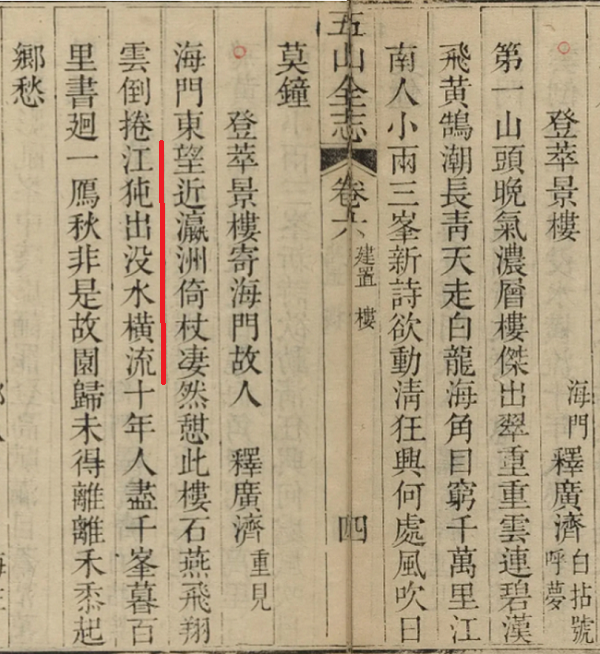 登萃景樓 海門釋廣濟 白拈號呼夢
第一山頭晚氣濃層樓傑出翠重重雲連碧漢
飛黃鵠潮長青天走白龍海角目窮千萬里江
南人小兩三峯新詩欲動清狂興何處風吹日
五山全志 卷六 建置 樓 四
莫鐘
登萃景樓寄海門故人 釋廣濟 重見
海門東望近瀛洲倚杖凄然憇此樓石燕飛翔
雲倒捲江㹠出没水橫流十年人盡千峯暮百
里書廻一鴈秋非是故園歸未得離離禾黍起
鄉愁